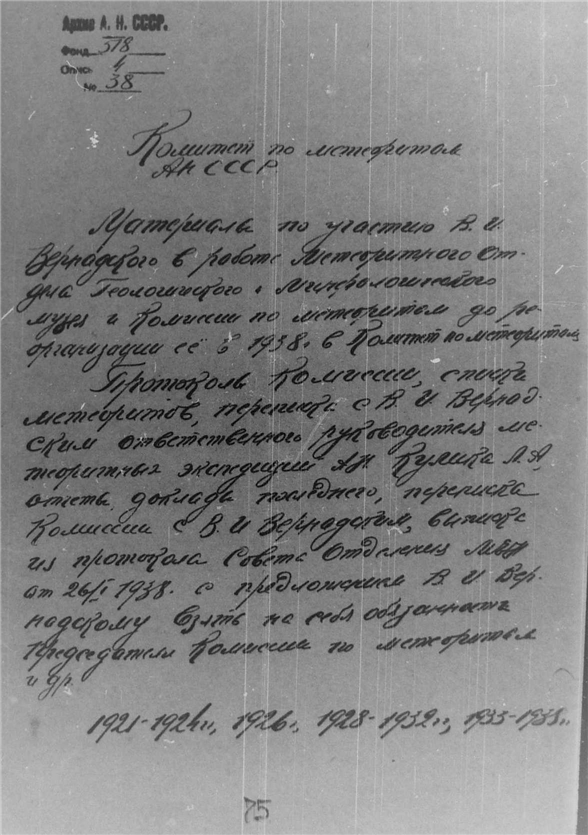 Архив А. Н. СССР.
Фонд 518
Опись 4
№ 38
Комитет по метеоритам
АН СССР
Материалы по участию В. И.
Вернадского в работе Метеоритного От-
дела Геологического и Минералогического
музея и Комиссии по метеоритам до ре-
организации её в 1938 г. в Комитет по метеоритам
Протоколы Комиссии, списки
метеоритов, переписка с В. И. Вернад-
ским ответственного руководителя ме-
теоритных экспедиций АН Кулика Л. А,
отчеты, доклады последнего, переписка
Комиссии с В. И Вернадским, выписка
из протокола Совета Отделения
от 26/I 1938 г. с предложением В. И Вер-
надскому взять на себя обязанность
Председателя Комиссии по метеоритам
и др.
1921-1924 гг, 1926 г, 1928-1932 гг, 1933-1938 гг.
75